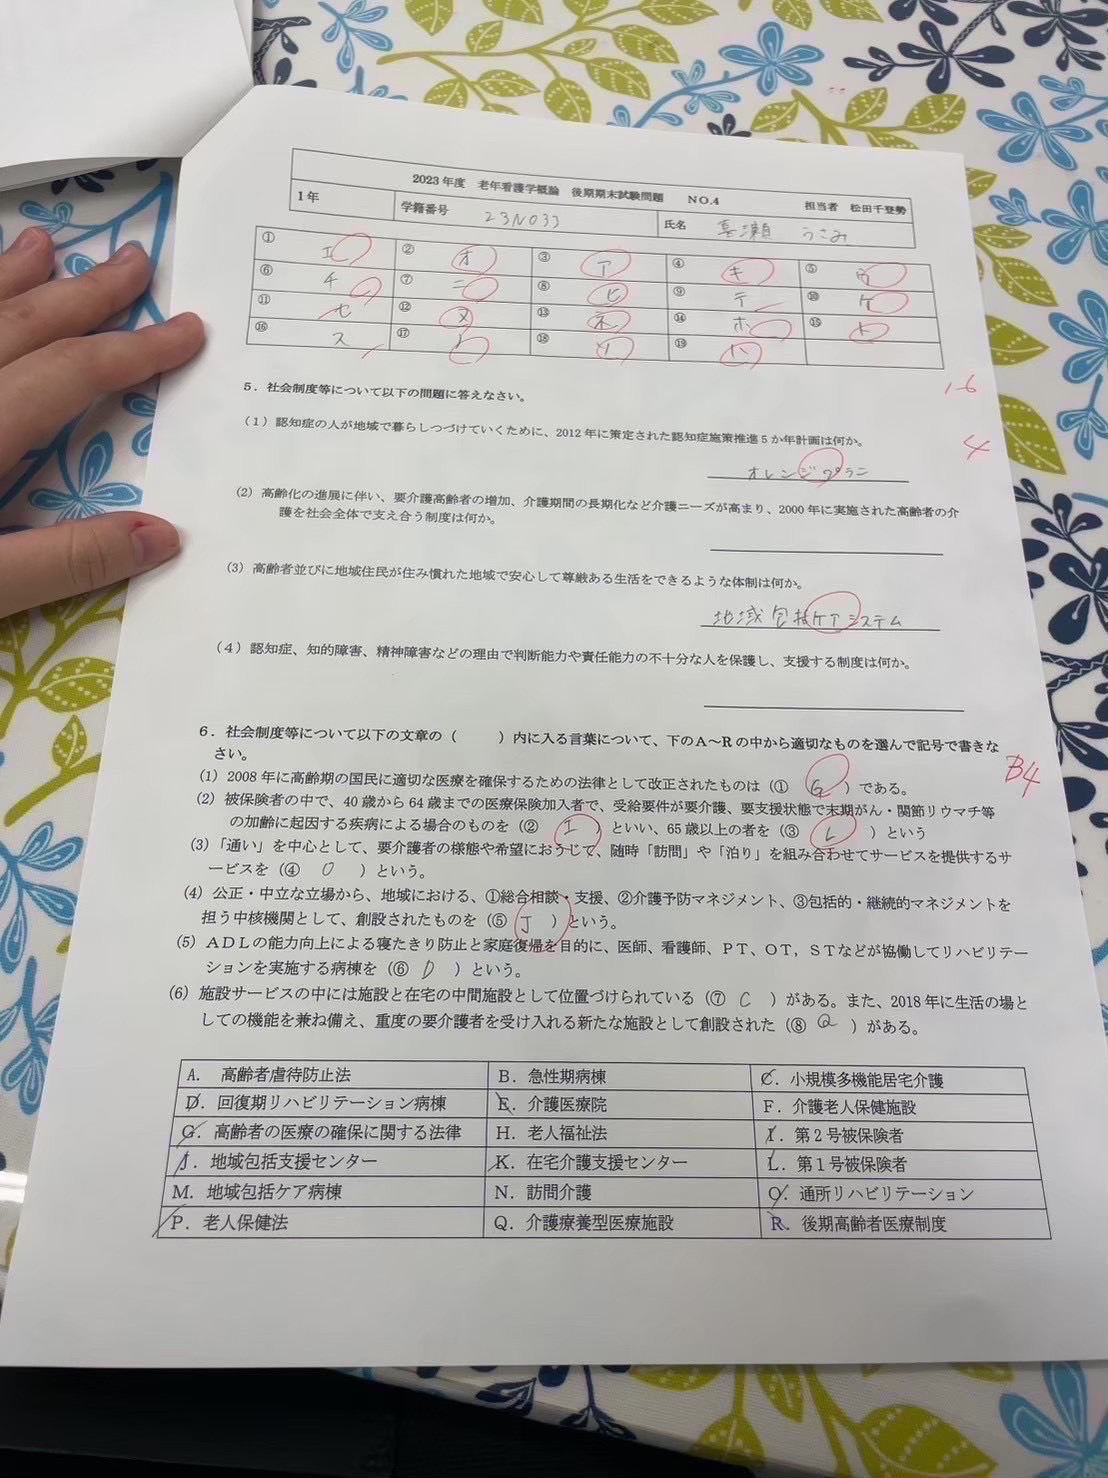 2023年度 老年看護学概論 後期期末試験問題 NO.4 担当者 松田千登勢
1年 学籍番号 23N033 氏名 うさみ
① エ ② オ ③ ア ④ キ ⑤ ウ
⑥ チ ⑦ ニ ⑧ ヒ ⑨ テ ⑩ ケ
⑪ セ ⑫ ヌ ⑬ ネ ⑭ ホ ⑮ ト
⑯ ス ⑰ ⑱ ソ ⑲ ハ
16
5.社会制度等について以下の問題に答えなさい。
(1)認知症の人が地域で暮らしつづけていくために、2012年に策定された認知症施策推進5か年計画は何か。
4
オレンジプラン
(2)高齢化の進展に伴い、要介護高齢者の増加、介護期間の長期化など介護ニーズが高まり、2000年に実施された高齢者の介
護を社会全体で支え合う制度は何か。
(3)高齢者並びに地域住民が住み慣れた地域で安心して尊厳ある生活をできるような体制は何か。
地域包括ケアシステム
(4)認知症、知的障害、精神障害などの理由で判断能力や責任能力の不十分な人を保護し、支援する制度は何か。
6.社会制度等について以下の文章の( )内に入る言葉について、下のA～Rの中から適切なものを選んで記号で書きな
さい。
(1)2008年に高齢期の国民に適切な医療を確保するための法律として改正されたものは(① G )である。
(2)被保険者の中で、40歳から64歳までの医療保険加入者で、受給要件が要介護、要支援状態で末期がん・関節リウマチ等
の加齢に起因する疾病による場合のものを(② I )といい、65歳以上の者を(③ L )という
(3)「通い」を中心として、要介護者の様態や希望におうじて、随時「訪問」や「泊り」を組み合わせてサービスを提供するサ
ービスを(④ O )という。
(4)公正・中立な立場から、地域における、①総合相談・支援、②介護予防マネジメント、③包括的・継続的マネジメントを
担う中核機関として、創設されたものを(⑤ J )という。
(5)ADLの能力向上による寝たきり防止と家庭復帰を目的に、医師、看護師、PT、OT,STなどが協働してリハビリテー
ションを実施する病棟を(⑥ D )という。
(6)施設サービスの中には施設と在宅の中間施設として位置づけられている(⑦ C )がある。また、2018年に生活の場と
しての機能を兼ね備え、重度の要介護者を受け入れる新たな施設として創設された(⑧ Q )がある。
A. 高齢者虐待防止法 B.急性期病棟 C.小規模多機能居宅介護
D.回復期リハビリテーション病棟 E.介護医療院 F.介護老人保健施設
G.高齢者の医療の確保に関する法律 H.老人福祉法 I.第2号被保険者
J.地域包括支援センター K.在宅介護支援センター L.第1号被保険者
M.地域包括ケア病棟 N.訪問介護 O.通所リハビリテーション
P.老人保健法 Q.介護療養型医療施設 R.後期高齢者医療制度